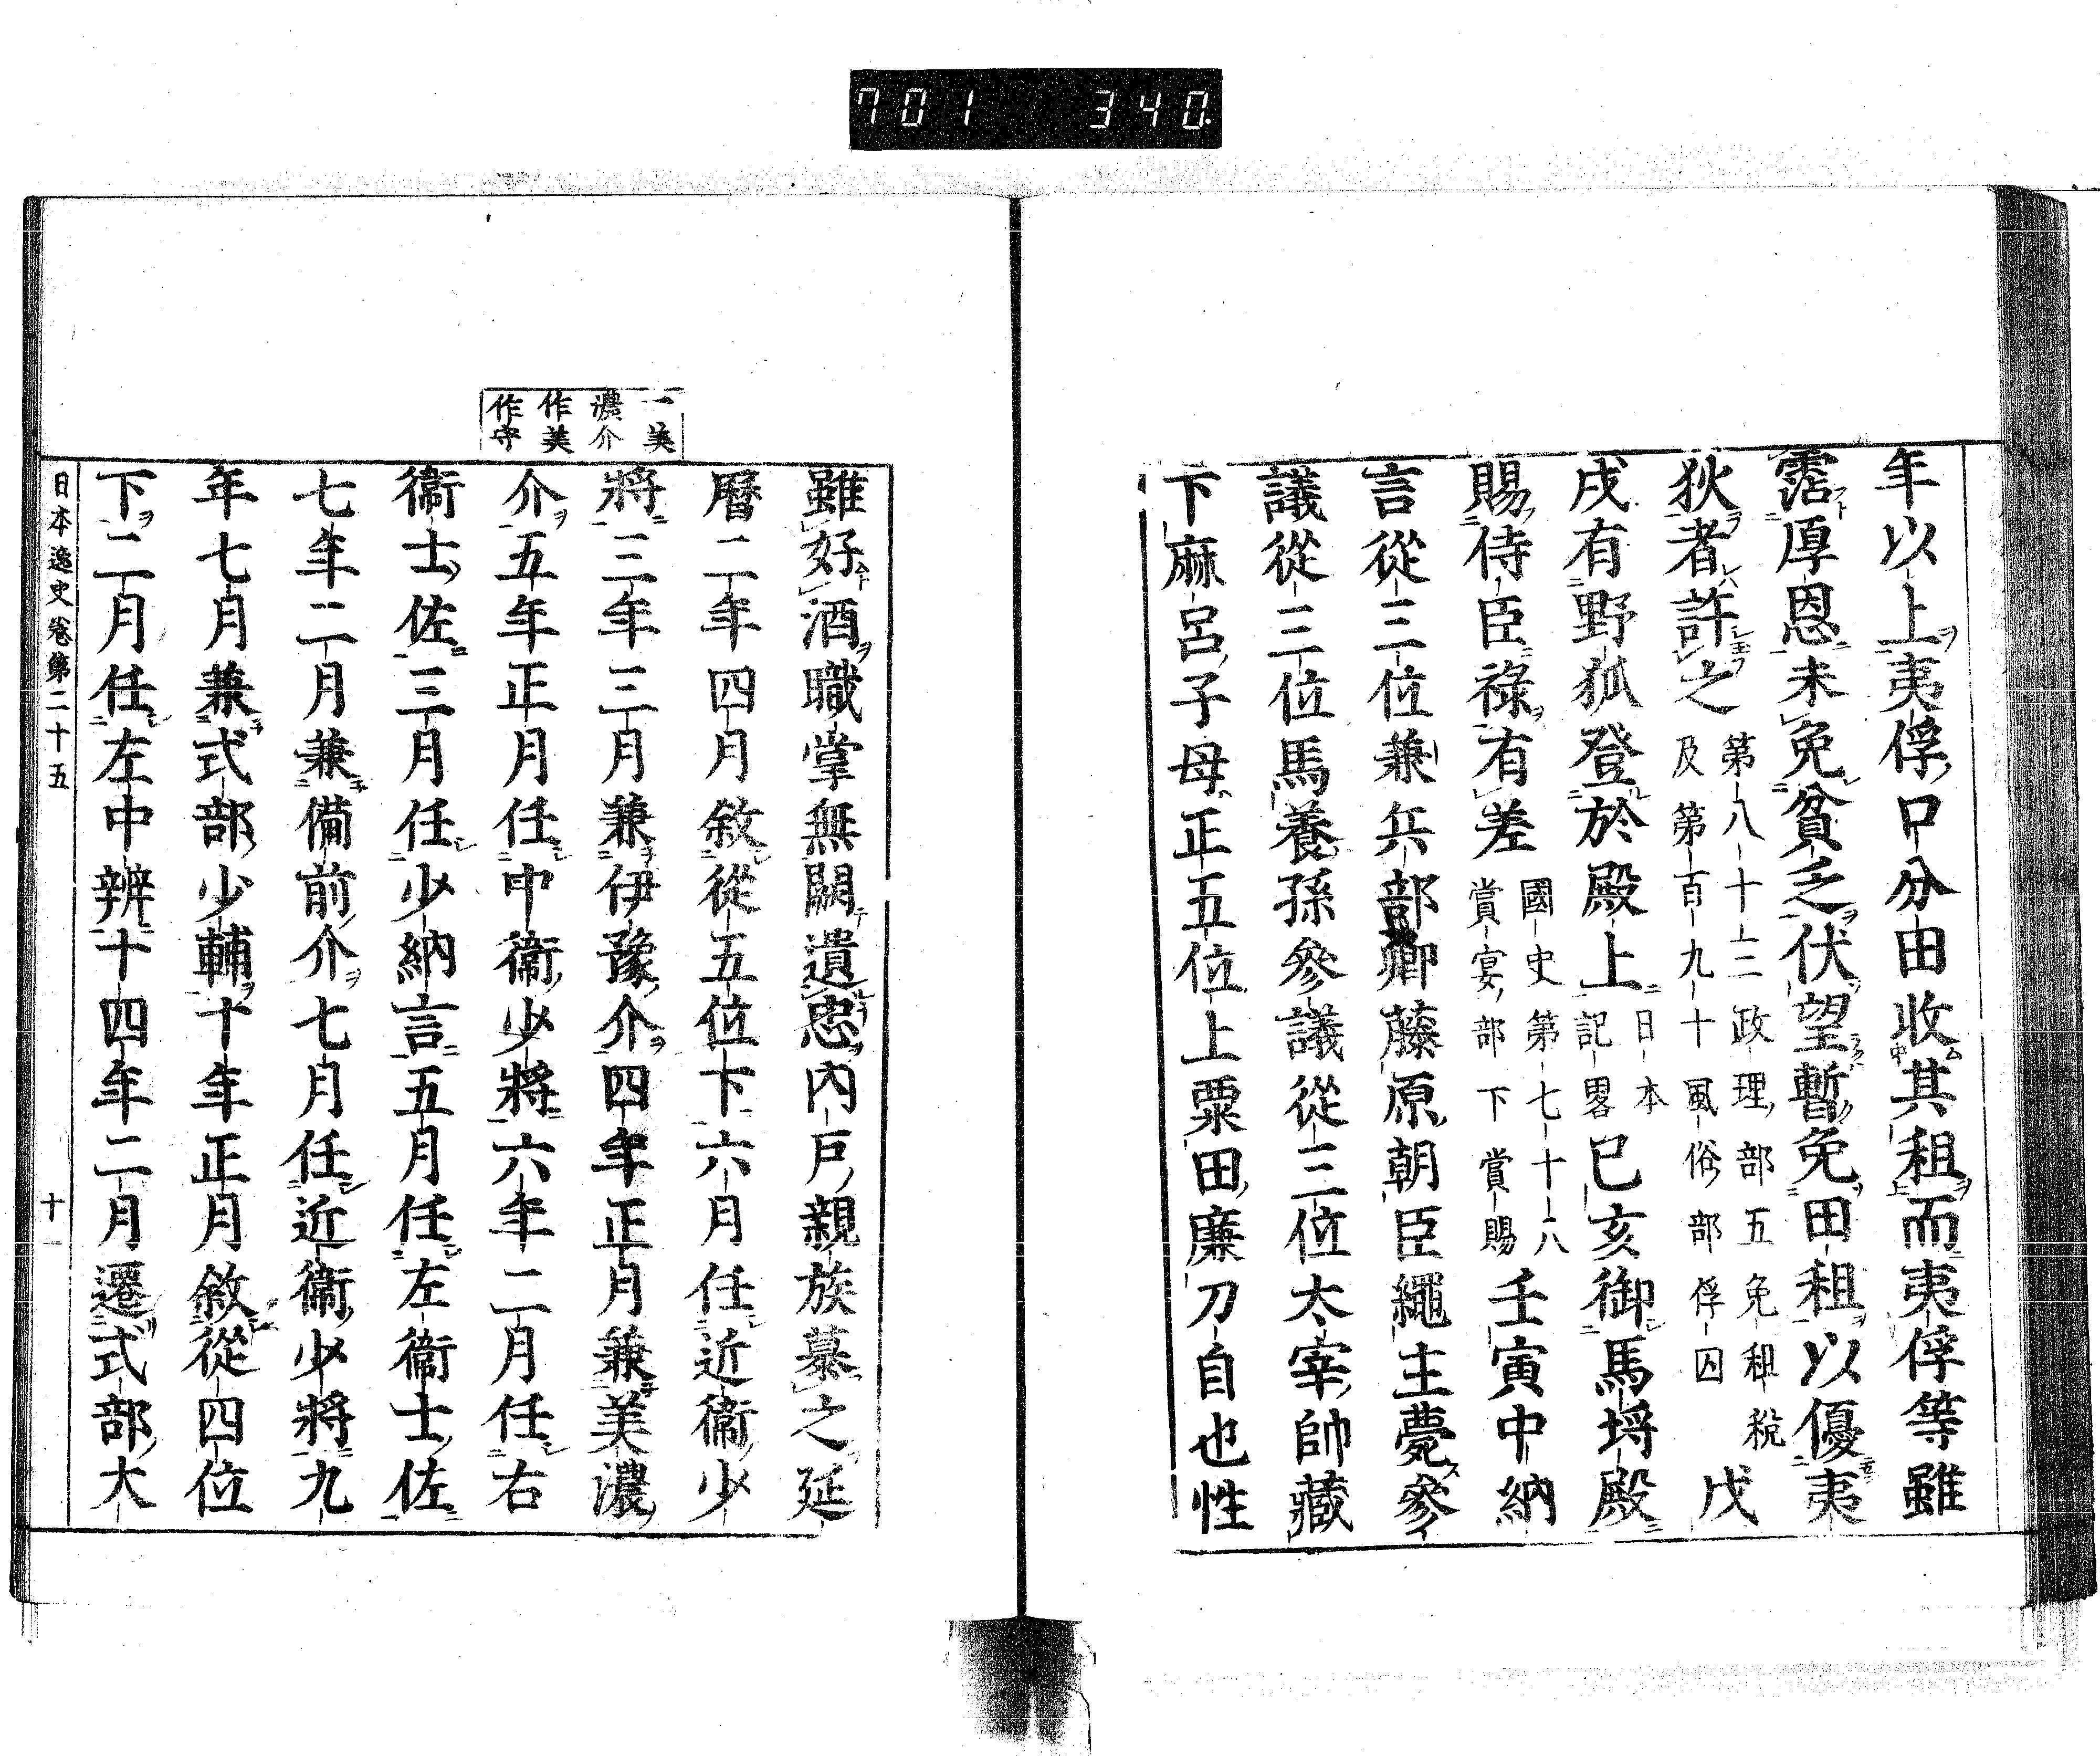 701 340
年以上夷俘口分田收其租而夷俘等雖
霑厚恩未免貧乏伏望暫免田租以優夷
狄者許之第八十三政理部五免租税
及第百九十風俗部俘囚戊
戌有野狐登於殿上日本
記畧已亥御馬埒殿
賜侍臣祿有差國史第七十八
賞宴部下賞賜壬寅中納
言從三位兼兵部卿藤原朝臣繩主薨參
議從三位馬養孫參議從三位太宰帥藏
下麻呂子母正五位上粟田廉刀自也性
一美
濃介
作美
作守
雖好酒職掌無闕遺忠內戶親族慕之延
曆二年四月敘從五位下六月任近衞少
將三年三月兼伊豫介四年正月兼美濃
介五年正月任中衞少將六年二月任右
衞士佐三月任少納言五月任左衞士佐
七年二月兼備前介七月任近衞少將九
年七月兼式部少輔十年正月敘從四位
下二月任左中辨十四年二月遷式部大
日本逸史卷第二十五 十一